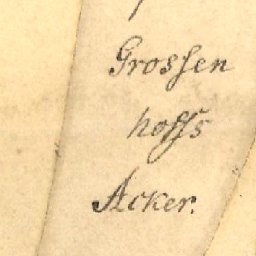 Grosſen
hoffs
Acker.